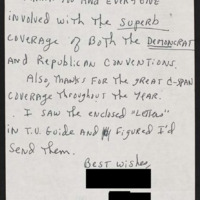 THANK YOU AND EVERYONE
INVOLVED WITH THE SUPERB
COVERAGE OF BOTH THE DEMONCRAT
AND REPUBLICAN CONVENTIONS.
ALSO, THANKS FOR THE GREAT C-SPAN
COVERAGE THROUGHOUT THE YEAR.
I SAW THE ENCLOSED "LETTERS"
IN T.V. GUIDE AND FIGURED I'D
SEND THEM.
BEST WISHES,